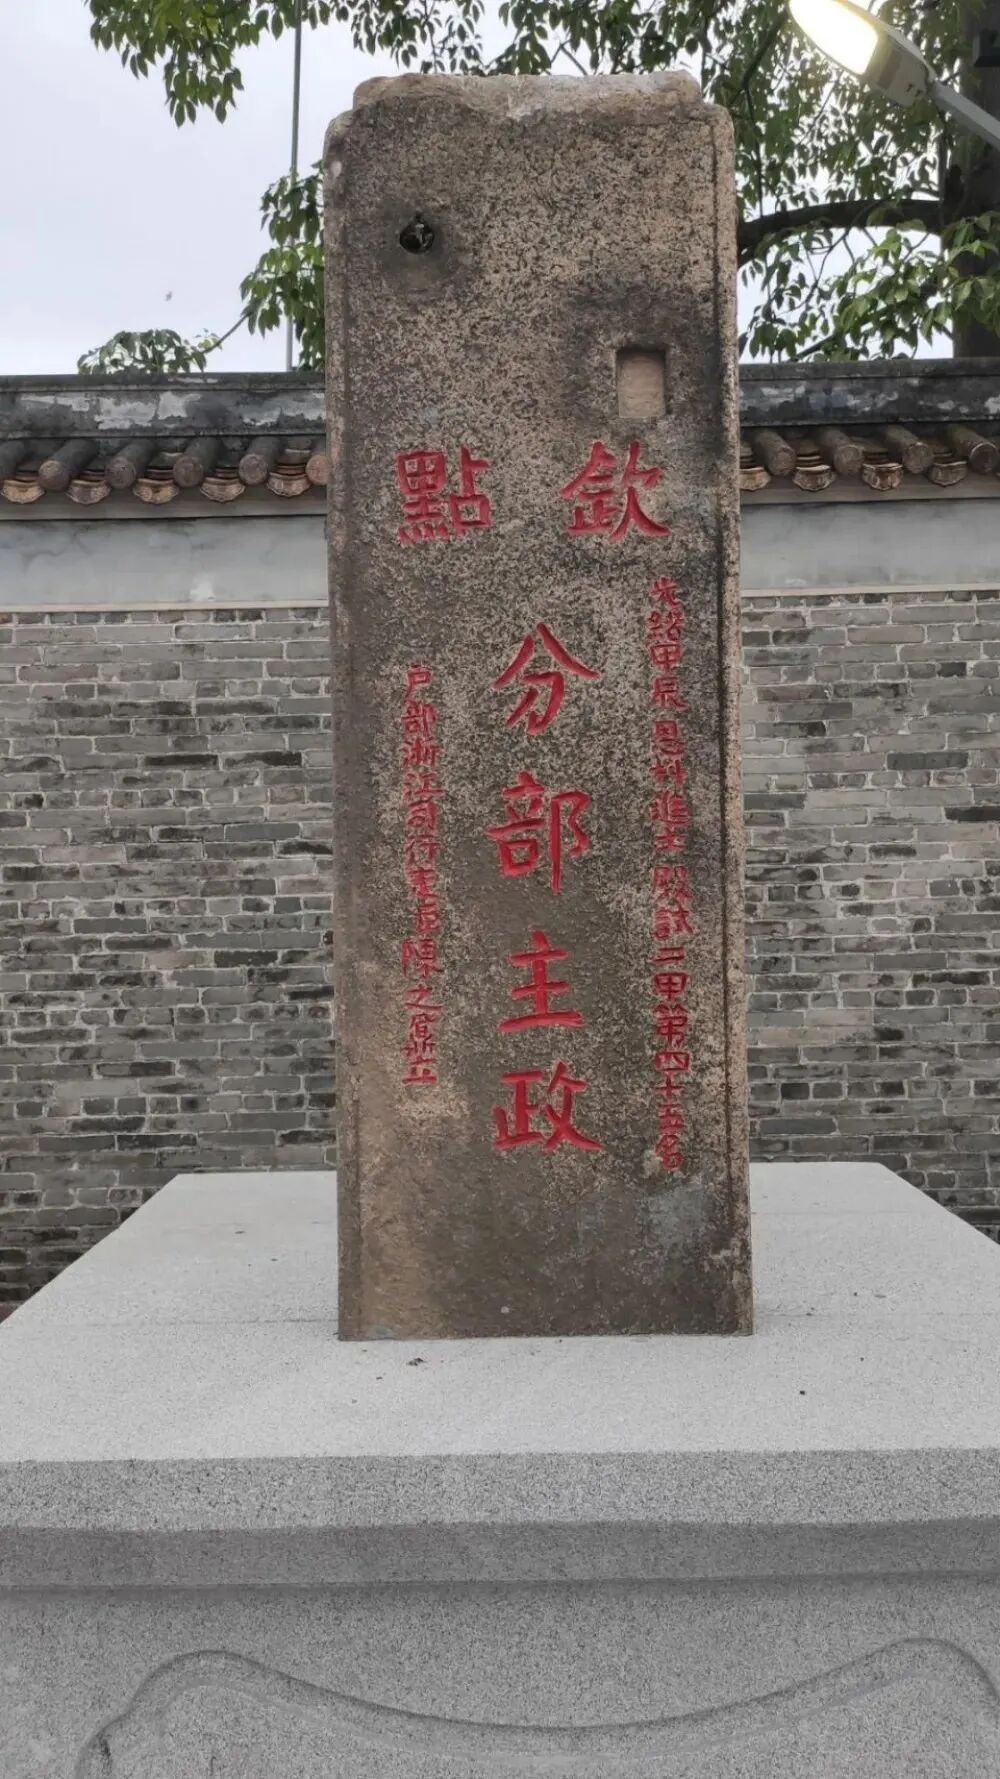 欽點
光緒甲辰恩科進士殿試二甲第四十五名
分部主政
户部浙江司行走臣陳之鼐立